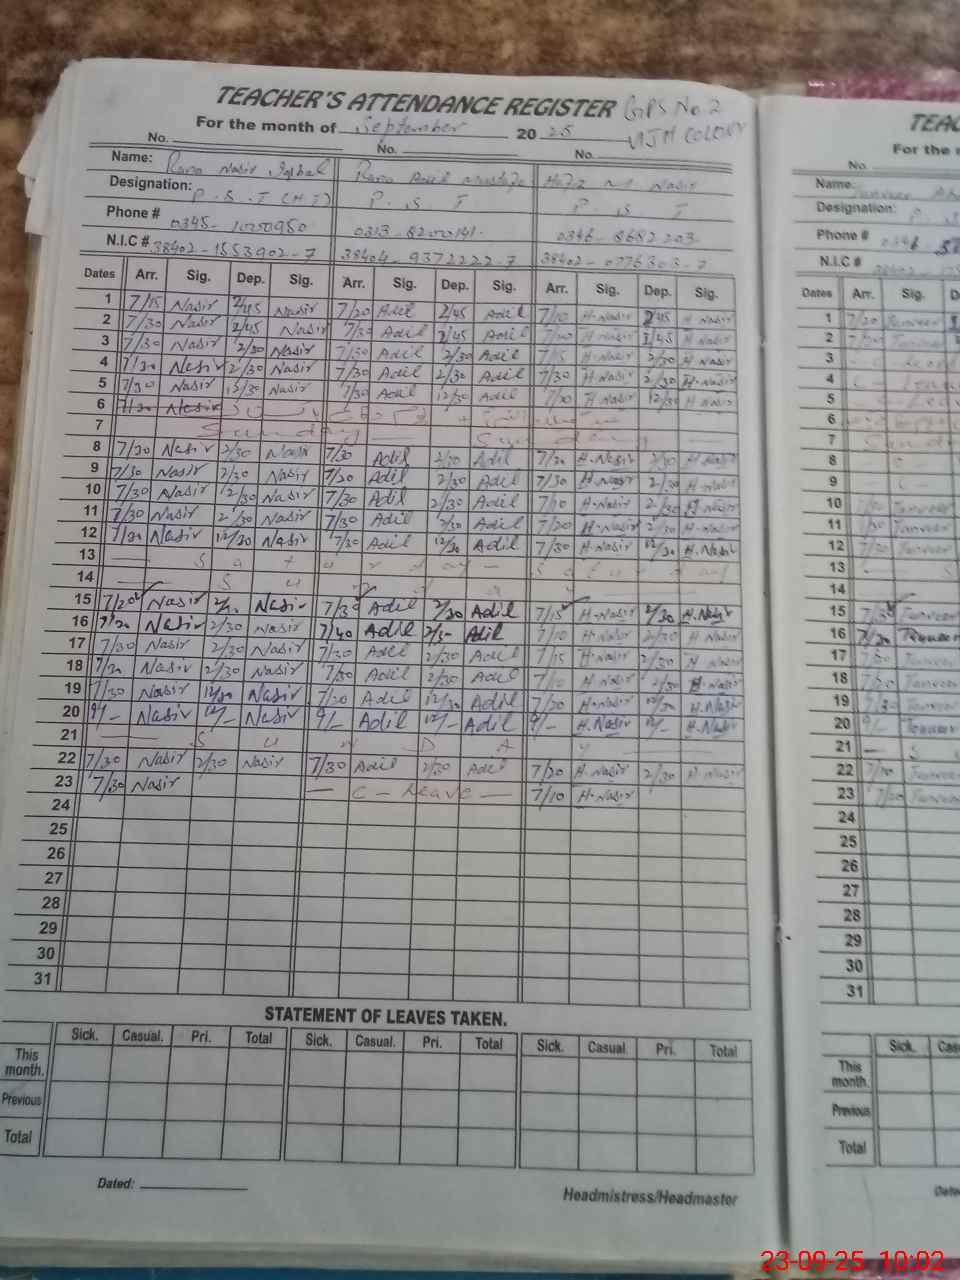 TEACHER'S ATTENDANCE REGISTER GPS No. 2
For the month of September 20 25 MJM COLONY
No. No. No.
Name: Rana Nasir Iqbal Rana Adil Mustafa Hafiz M. Nasir
Designation: P. S. T (H.T) P. S. T P. S. T
Phone # 0345- 0313-8200141. 0346-8682203.
N.I.C # 38402-1553902-7 38404-9372222-7 38402-0776303-7
Dates Arr. Sig. Dep. Sig. Arr. Sig. Dep. Sig. Arr. Sig. Dep. Sig.
1 7/15 Nasir 2/45 Nasir 7/20 Adil 2/45 Adil 7/10 H.Nasir 2/45 H.Nasir
2 7/30 Nasir 2/45 Nasir 7/30 Adil 2/45 Adil 7/10 H.Nasir 2/45 H.Nasir
3 7/30 Nasir 2/30 Nasir 7/30 Adil 2/30 Adil 7/15 H.Nasir 2/30 H.Nasir
4 7/30 Nasir 2/30 Nasir 7/30 Adil 2/30 Adil 7/30 H.Nasir 2/30 H.Nasir
5 7/30 Nasir 12/30 Nasir 7/30 Adil 12/30 Adil 7/10 H.Nasir 12/30 H.Nasir
6 7/30 Nasir
7 Sunday Sunday
8 7/30 Nasir 2/30 Nasir 7/30 Adil 2/30 Adil 7/30 H.Nasir 2/30 H.Nasir
9 7/30 Nasir 2/30 Nasir 7/20 Adil 2/30 Adil 7/30 H.Nasir 2/30 H.Nasir
10 7/30 Nasir 2/30 Nasir 7/30 Adil 2/30 Adil 7/10 H.Nasir 2/30 H.Nasir
11 7/30 Nasir 2/30 Nasir 7/30 Adil 2/30 Adil 7/20 H.Nasir 2/30 H.Nasir
12 7/30 Nasir 12/30 Nasir 7/30 Adil 12/30 Adil 7/30 H.Nasir 12/30 H.Nasir
13 — Saturday — Saturday
14 — Sunday
15 7/20 Nasir 2/30 Nasir 7/30 Adil 2/30 Adil 7/15 H.Nasir 2/30 H.Nasir
16 7/30 Nasir 2/30 Nasir 7/40 Adil 2/30 Adil 7/10 H.Nasir 2/30 H.Nasir
17 7/30 Nasir 2/30 Nasir 7/30 Adil 2/30 Adil 7/15 H.Nasir 2/30 H.Nasir
18 7/30 Nasir 2/30 Nasir 7/30 Adil 2/30 Adil 7/10 H.Nasir 2/30 H.Nasir
19 7/30 Nasir 12/30 Nasir 7/20 Adil 12/30 Adil 7/20 H.Nasir 12/30 H.Nasir
20 9/- Nasir 12/- Nasir 9/- Adil 12/- Adil 9/- H.Nasir 12/- H.Nasir
21 — SUNDAY —
22 7/30 Nasir 2/30 Nasir 7/30 Adil 2/30 Adil 7/20 H.Nasir 2/30 H.Nasir
23 7/30 Nasir — C-Leave — 7/10 H.Nasir
24
25
26
27
28
29
30
31
STATEMENT OF LEAVES TAKEN.
Sick. Casual. Pri. Total Sick. Casual. Pri. Total Sick. Casual. Pri. Total
This month.
Previous
Total
Dated: Headmistress/Headmaster
TEAC
For the
No.
Name: Tanveer
Designation: P.
Phone # 0346-
N.I.C #
Dates Arr. Sig.
1 7/20 Tanveer
2 7/20 Tanveer
3
4 C-Leave
5
6
7 Sund
8
9
10 Tanveer
11 Tanveer
12 7/20 Tanveer
13 — S
14
15 7/30 Tanveer
16 7/30 Tanveer
17 7/30 Tanveer
18 7/30 Tanveer
19 7/30 Tanveer
20 9/- Tanveer
21 — S
22 7/10 Tanveer
23 7/30 Tanveer
24
25
26
27
28
29
30
31
Sick. Cas
This month.
Previous
Total
Date
23-09-25 10:02